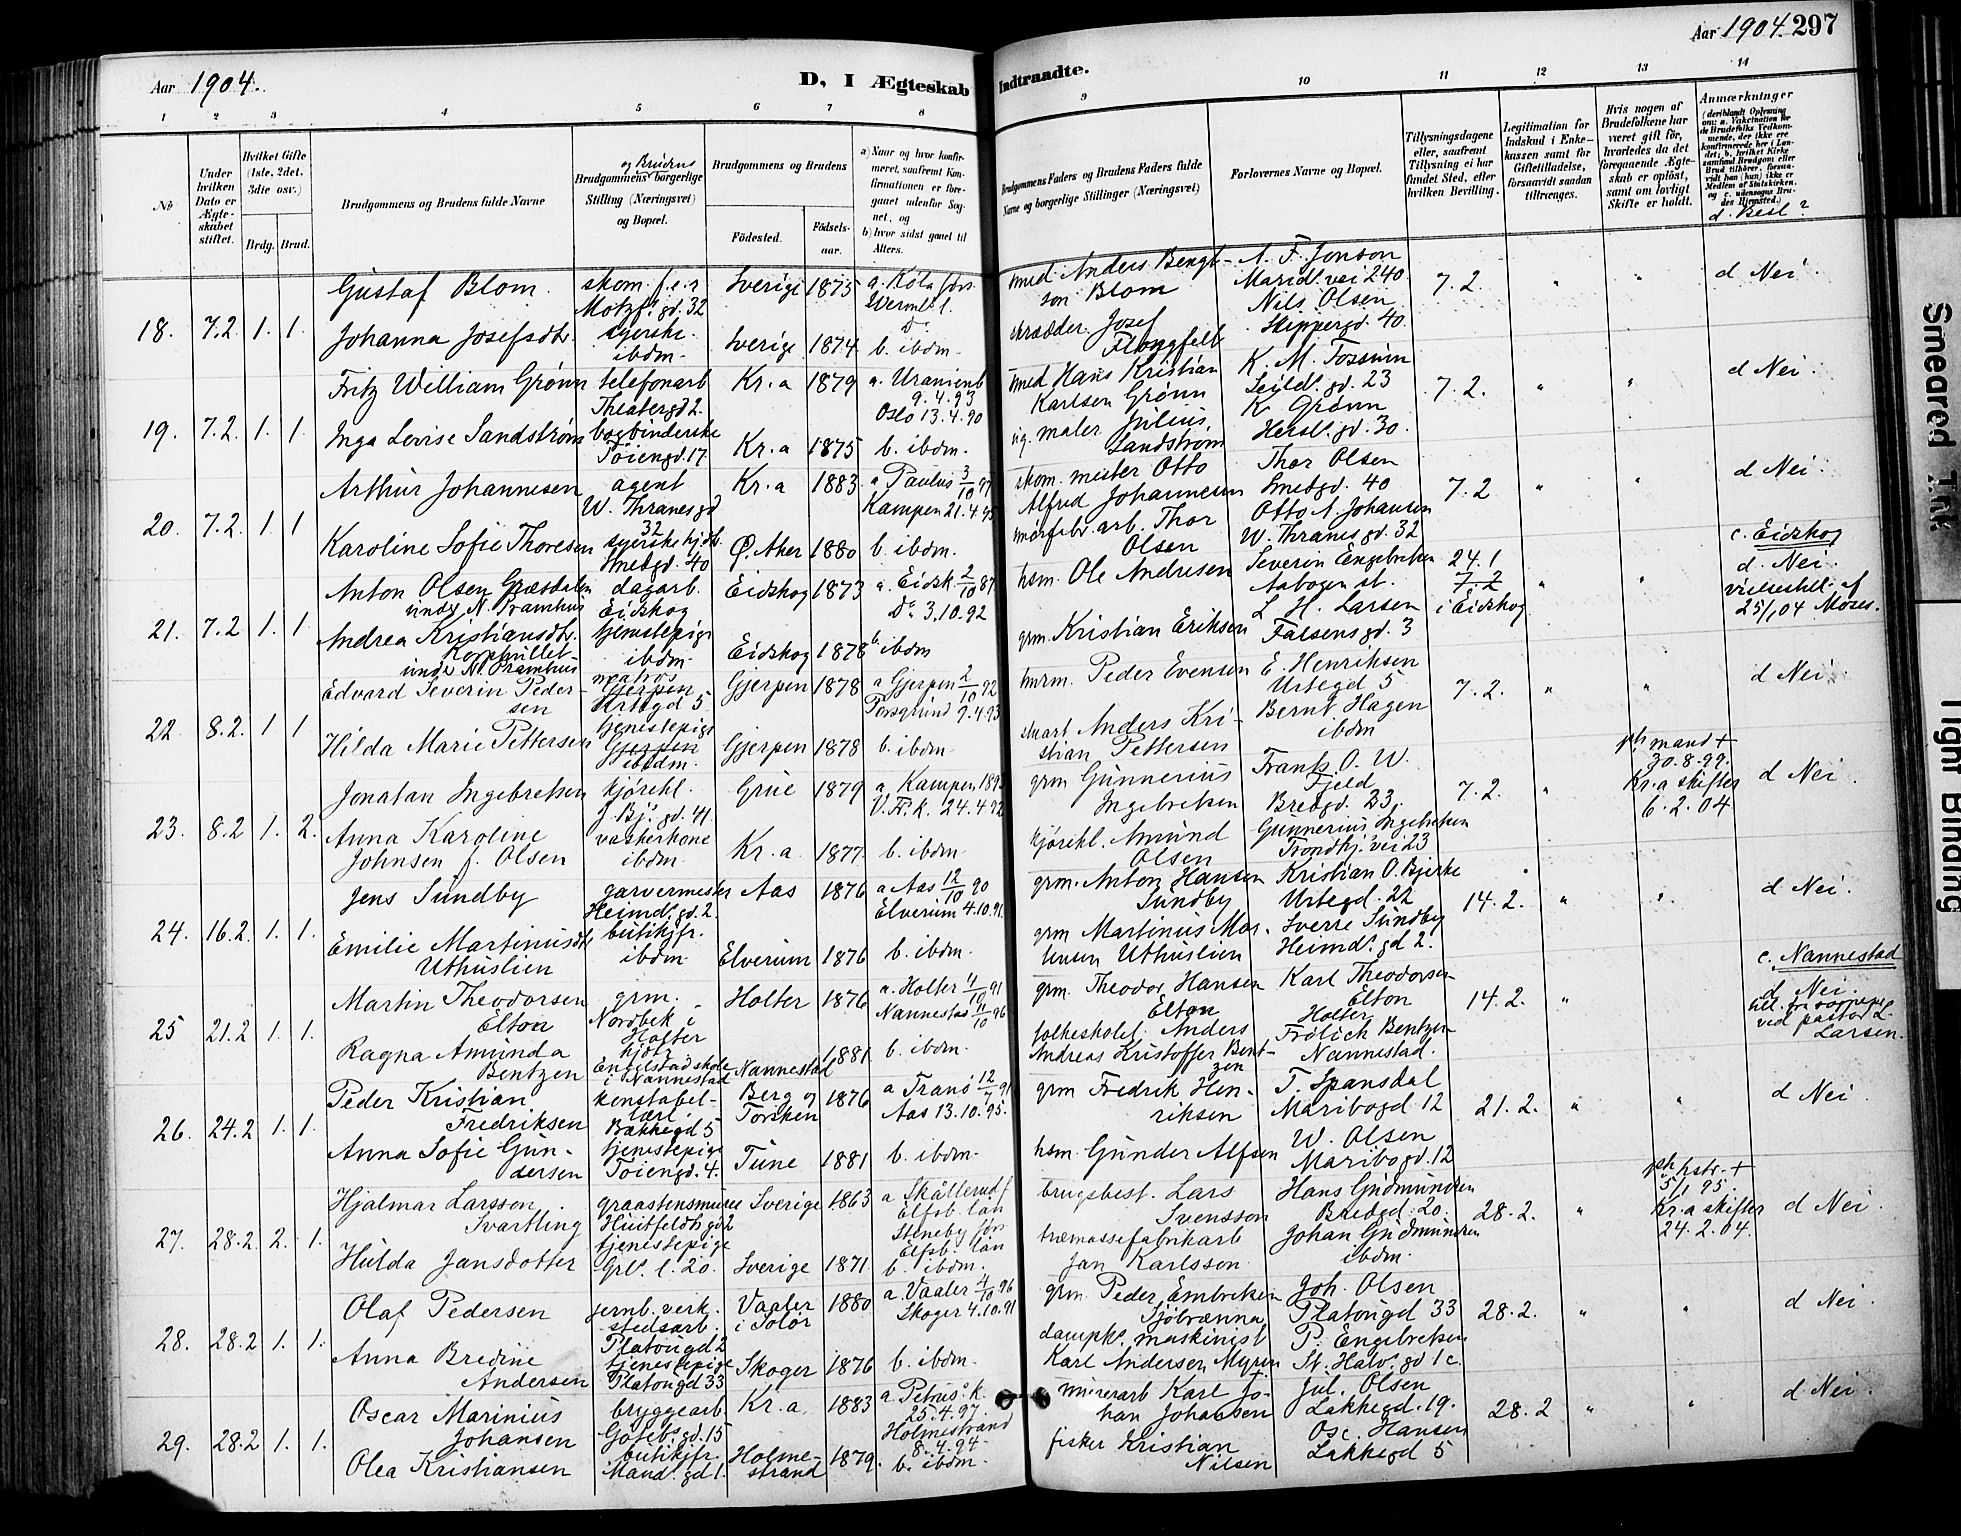 Aar 1904.
D, I Ægteskab Indtraadte.
Aar 1904. 297
1 2 3 4 5 6 7 8 9 10 11 12 13 14
No
Under hvilken Dato er Ægteskabet stiftet.
Hvilket Gifte (1ste, 2det, 3die osv.)
Brdg. Brud.
Brudgommens og Brudens fulde Navne
og Brudens
Brudgommens borgerlige Stilling (Næringsvei) og Bopæl.
Brudgommens og Brudens
Fødested. Fødsels-aar.
a) Naar og hvor konfirmeret, saafremt Konfirmationen er foregaaet udenfor Sognet, og
b) hvor sidst gaaet til Alters.
Brudgommens Faders og Brudens Faders fulde Navne og borgerlige Stillinger (Næringsvei)
Forlovernes Navne og Bopæl.
Tillysningsdagene eller, saafremt Tillysning ei har fundet Sted, efter hvilken Bevilling.
Legitimation for Indskud i Enkekassen samt for Giftetilladelse, forsaavidt saadan tiltrænges.
Hvis nogen af Brudefolkene har været gift før, hvorledes da det foregaaende Ægteskab er opløst, samt om lovligt Skifte er holdt.
Anmærkninger
d. Besl?
18. 7.2. 1. 1.
Gustaf Blom. skom.f.e.r Motzf. gd. 32 Sverige 1875 a. Köla förs. Vermld. smed Anders Bengtson Blom A. F. Jonson Maridl. vei 240 7.2. " " d Nei.
Johanna Josefsdtr. syerske ibdm. Sverige 1874 Do b. ibdm. skrædder Josef Nils Olsen Skippergd. 40.
19. 7.2. 1. 1.
Fritz William Grønn telefonarb Theatergd 2. Kr.a 1879 a. Uranienb 9.4.93 smed Hans Kristian Karlsen Grønn K. M. Fossum Seild. gd. 23 7.2. " " d Nei.
Inga Lovise Sandstrøm bogbinderske Tøiengd. 17 Kr.a 1875 Oslo 13.4.90 b. ibdm. maler Julius Sandstrøm K Grønn Hersl. gd. 30.
20. 7.2. 1. 1
Arthur Johannesen agent W. Thranes gd 32 Kr.a 1883 a Paulus 3/10 97 skom. mester Otto Alfred Johannesen Thor Olsen Smedgd. 40 7.2 " " d Nei.
Karoline Sofie Thoresen syerske Smedgd. 40 Ø. Aker 1880 Kampen 21.4.95 b. ibdm. arb. Thor Olsen Otto A. Johansen W. Thranes gd. 32
21. 7.2 1. 1
Anton Olsen Græsdalen under N. Pramhus dagarb. Eidskog Eidskog 1873 a. Eidsk. 2/10 87 hsm. Ole Andresen Severin Engebretsen Aabogen st. 24.1 7.2 i Eidskog " " c. Eidskog d. Nei. vielsestill. af 25/1 04 Moses.
Andrea Kristiansdtr. under N. Pramhus tjenestepige ibdm Eidskog 1878 Do 3.10.92 b. ibdm grm. Kristian Eriksen L. H. Larsen Falsensgd. 3
22. 8.2. 1 1
Edvard Severin Pedersen matros Gjerpen Urtegd 5 Gjerpen 1878 a Gjerpen 2/10 92 Peder Evensen E. Henriksen Urtegd 5 7.2. " " d Nei
Hilda Marie Pettersen tjenestepige Gjerpen ibdm. Gjerpen 1878 Porsgrund 9.4.93 b. ibdm Anders Kristian Pettersen Bernt Hagen ibdm
23. 8.2 1. 2.
Jonatan Ingebretsen kjørekl. J. Bj. gd. 41. Grue 1879 a. Kampen 1893 grm Gunnerius Ingebretsen Frank O. W. Fjeld Bredgd. 23. 7.2. " mand + 30.8.99. Kr.a skifter 6.2.04 d Nei
Anna Karoline Johnsen f. Olsen vaskerkone ibdm. Kr.a 1877 24.4.92 b. ibdm kjørekl. Amund Olsen Gunnerius Ingebretsen Trondhj. vei 23
24. 16.2. 1. 1.
Jens Sundby garvermester Heimd. gd. 2. Aas 1876 a Aas 12/10 90 grm. Anton Hansen Sundby Kristian O. Bjerke Urtegd. 22 14.2. " " d Nei.
Emilie Martinusdtr Uthuslien butikjfr. ibdm Elverum 1876 Elverum 4.10.91. b. ibdm. grm Martinus Mortensen Uthuslien Sverre Sundby Heimd. gd 2.
25 21.2 1. 1.
Martin Theodorsen Elton grm. Nordbek i Holter Holter 1876 a. Holter 4/10 91 grm. Theodor Hansen Elton Karl Theodorsen Elton Holter 14.2. " c. Nannestad d Nei. ved pastor L. Larsen.
Ragna Amunda Bentzen Engelstad skole i Nannestad Nannestad 1881 Nannestad 11/10 96 b. ibdm. folkeskolel. Anders Andreas Kristoffer Bentzen Frölich Bentzen Nannestad.
26. 24.2 1. 1.
Peder Kristian Fredriksen konstabellærl. Bakkegd 5 Berg og Torsken 1876 a Tranö 12/7 91 grm Fredrik Henriksen T. Spansdal Maribogd 12 21.2. " " d Nei
Anna Sofie Gundersen tjenestepige Tøiengd. 4. Tune 1881 Aas 13.10.95. b. ibdm. hsm. Gunder Alfsen W. Olsen Maribogd. 12
27. 28.2. 2. 1.
Hjalmar Larsson Svartling graastensmurer Huitfeldts gd 2 Sverige 1863 a Skållerud f Elfsb. län brugsbest. Lars Svensson Hans Gudmundsen Bredgd. 20. 28.2. " hstr. + 5/1 95. Kr.a skifter 24.2.04. d Nei.
Hulda Jansdotter tjenestepige Grl. l. 20. Sverige 1871 Steneby för Elfsb. län b. ibdm. træmassefabrikarb Jan Karlsson Johan Gudmundsen ibdm.
28. 28.2 1. 1.
Olaf Pedersen jernb. verkstedsarb. Platougd 2 Vaaler i Solør 1880 a. Vaaler 4/10 96 grm. Peder Embretsen Sjöbrænna Joh. Olsen Platougd 33 28.2. " " d Nei.
Anna Bredine Andersen tjenestepige Platougd 33 Skoger 1876 Skoger 4.10.91 b. ibdm. dampsk. maskinist Karl Andersen Myren P. Engebretsen St. Halv. gd 1c.
29. 28.2 1. 1.
Oscar Marinius Johansen bryggearb Gøtebs gd. 15 Kr.a. 1883 a Petrus k. 25.4.97. murerarb Karl Johan Johansen Jul. Olsen Lakkegd. 19. 28.2 " " d Nei.
Olea Kristiansen butikjfr. Mand. gd 1. Holmestrand 1879. Holmestrand 8.4.94. b. ibdm. fisker Kristian Nilsen Osc. Hansen Lakkegd 5
Smeared Ink
Tight Binding